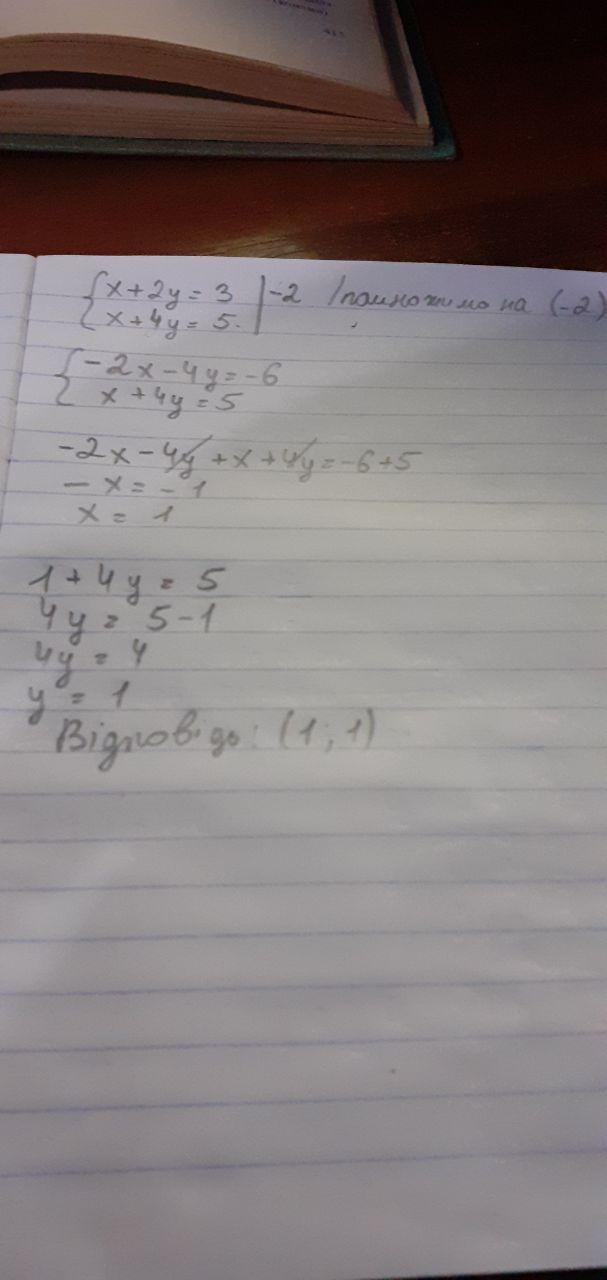 {x+2y=3 |-2 /помножимо на (-2)
{x+4y=5.
{-2x-4y=-6
x+4y=5
-2x-4y+x+4y=-6+5
-x=-1
x=1
1+4y=5
4y=5-1
4y=4
y=1
Відповідь: (1; 1)